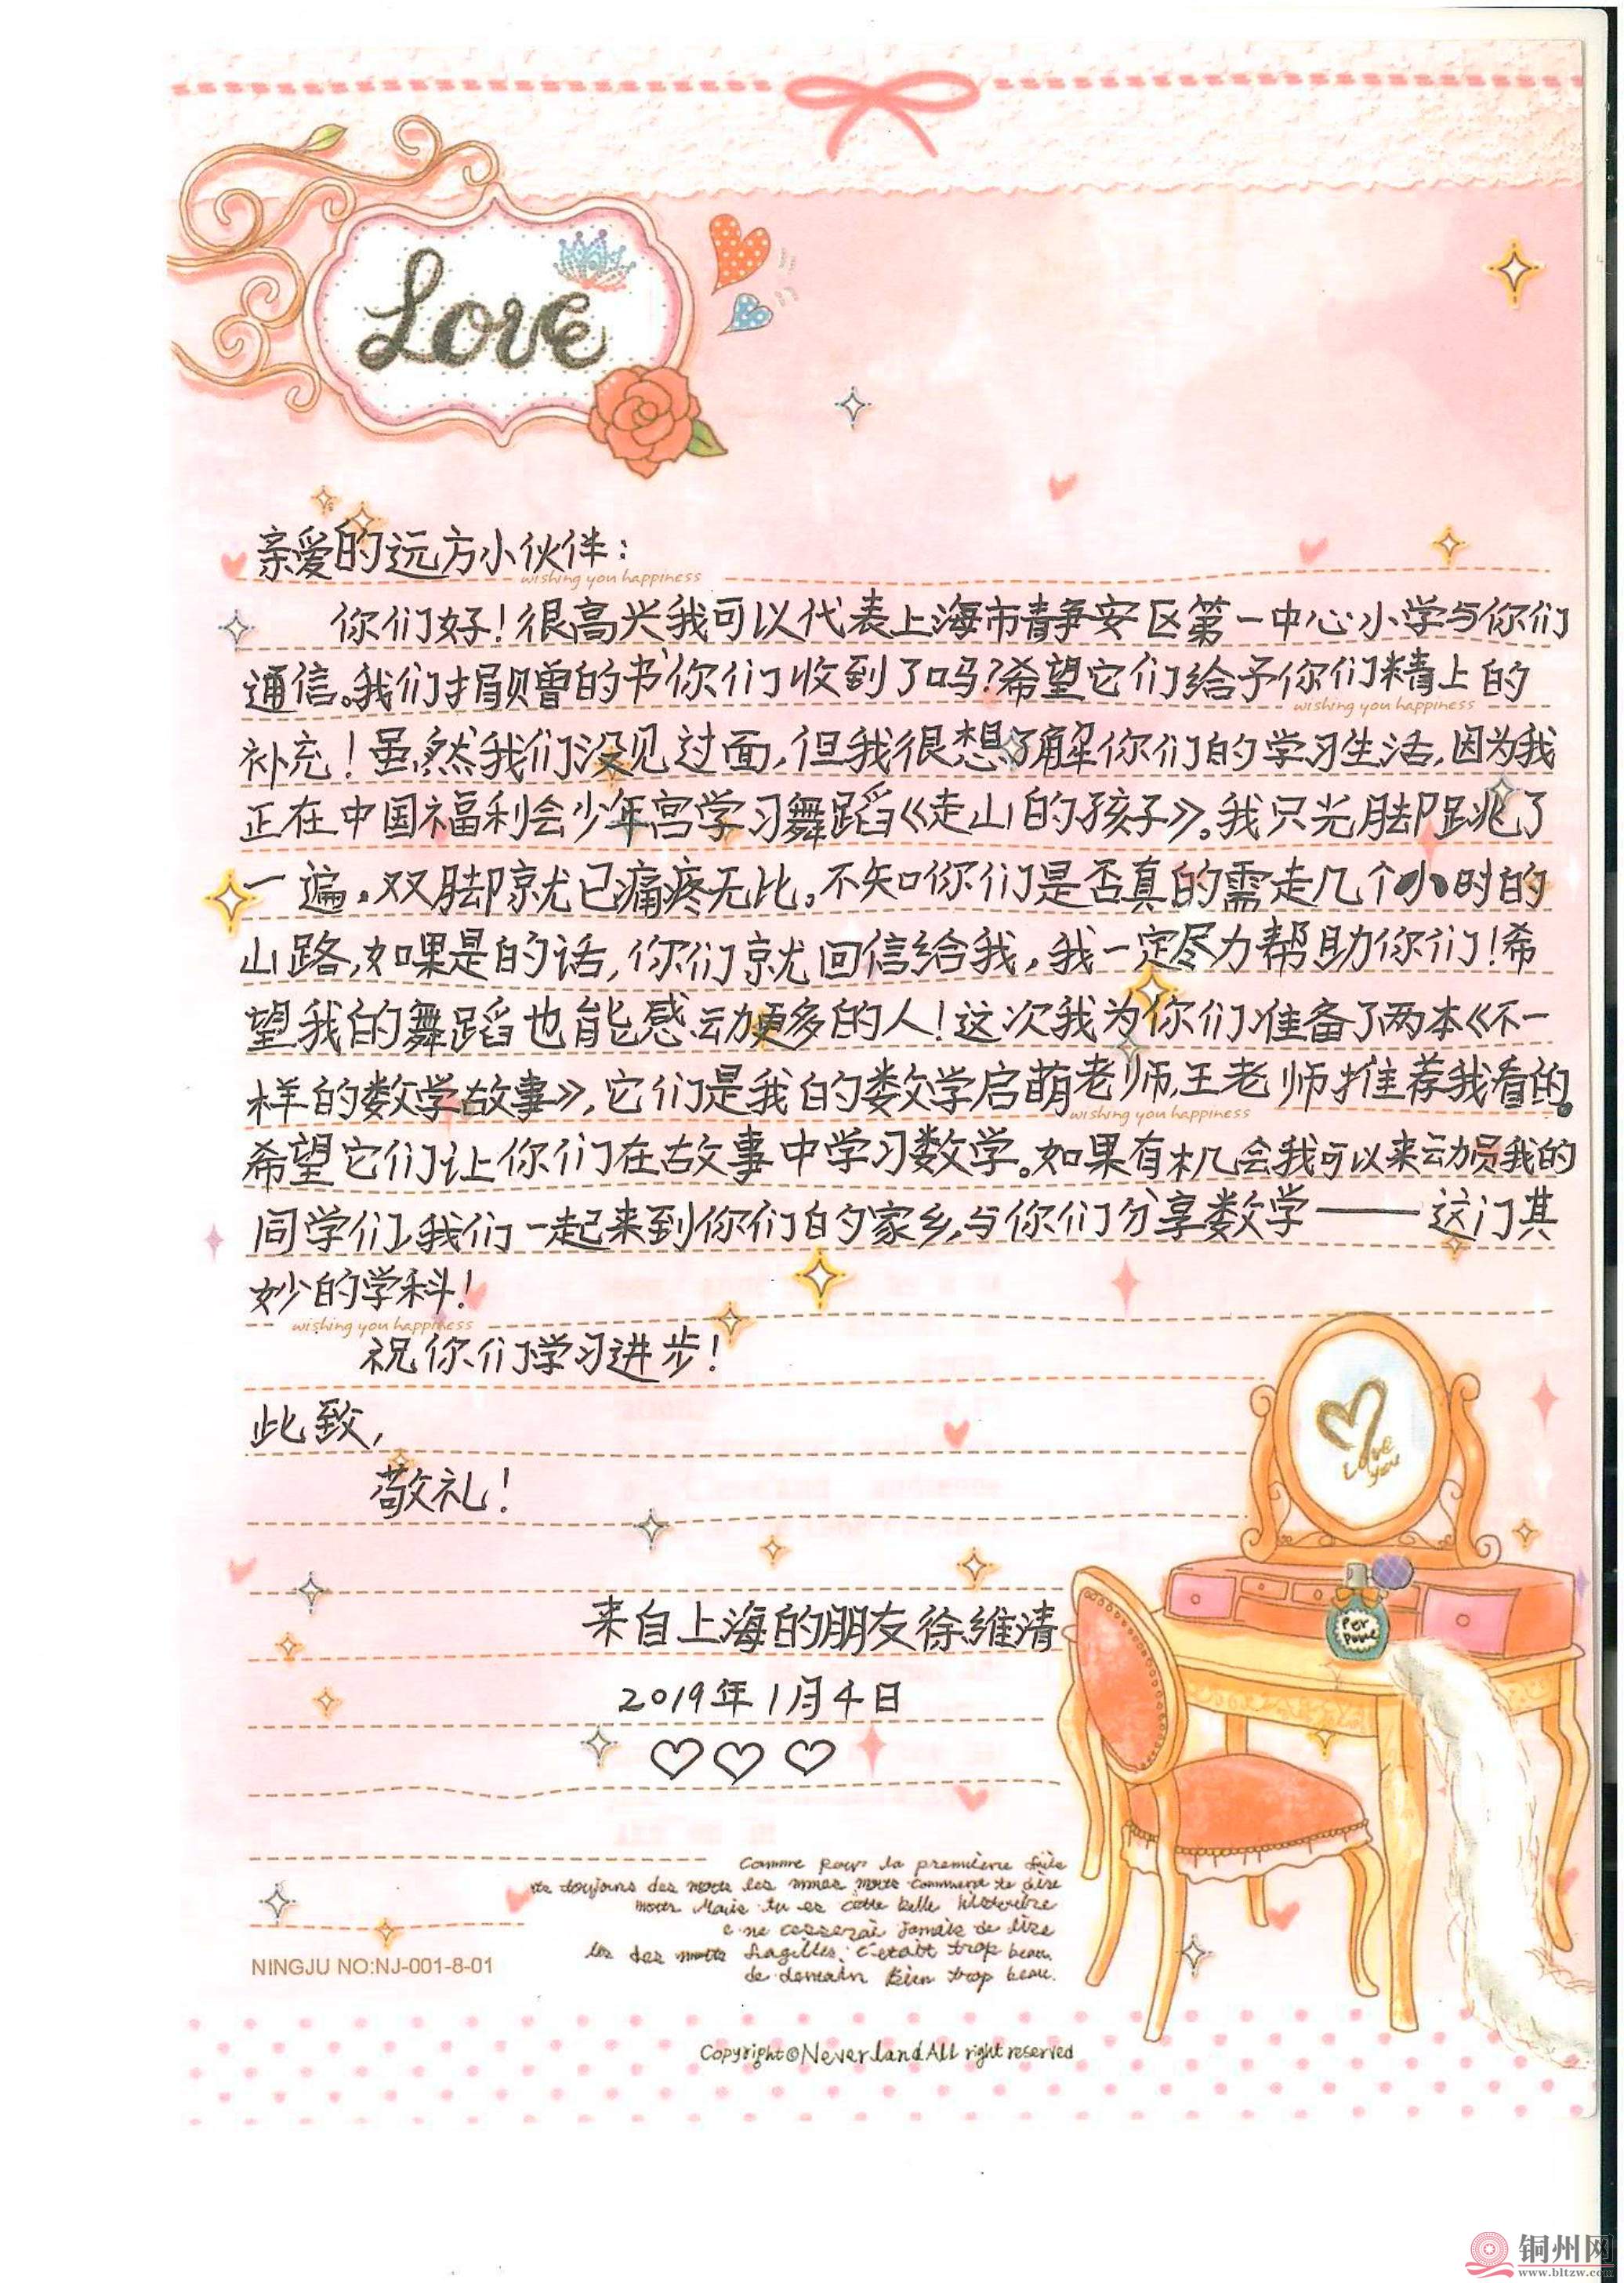 Love
亲爱的远方小伙伴：
wishing you happiness
你们好！很高兴我可以代表上海市静安区第一中心小学与你们
通信。我们捐赠的书你们收到了吗？希望它们给予你们精上的
wishing you happiness
补充！虽然我们没见过面，但我很想了解你们的学习生活，因为我
正在中国福利会少年宫学习舞蹈《走山的孩子》。我只光脚跳了
一遍，双脚就已痛疼无比。不知你们是否真的需走几个小时的
山路，如果是的话，你们就回信给我，我一定尽力帮助你们！希
望我的舞蹈也能感动更多的人！这次我为你们准备了两本《不一
样的数学故事》，它们是我的数学启萌老师，王老师推荐我看的。
wishing you happiness
希望它们让你们在故事中学习数学。如果有机会我可以来动员我的
同学们，我们一起来到你们的家乡，与你们分享数学——这门其
妙的学科！
wishing you happiness
祝你们学习进步！
此致，
敬礼！
Love you
来自上海的朋友徐维清
2019年1月4日
Comme pour la première
toujours des mots les
Marie tu es cette belle
ne cesserai jamais de lire
des mots fragilles c'était trop beau
de demain Bien trop beau.
NINGJU NO:NJ-001-8-01
Copyright©Never.land All right reserved
铜州网
www.bltzw.com